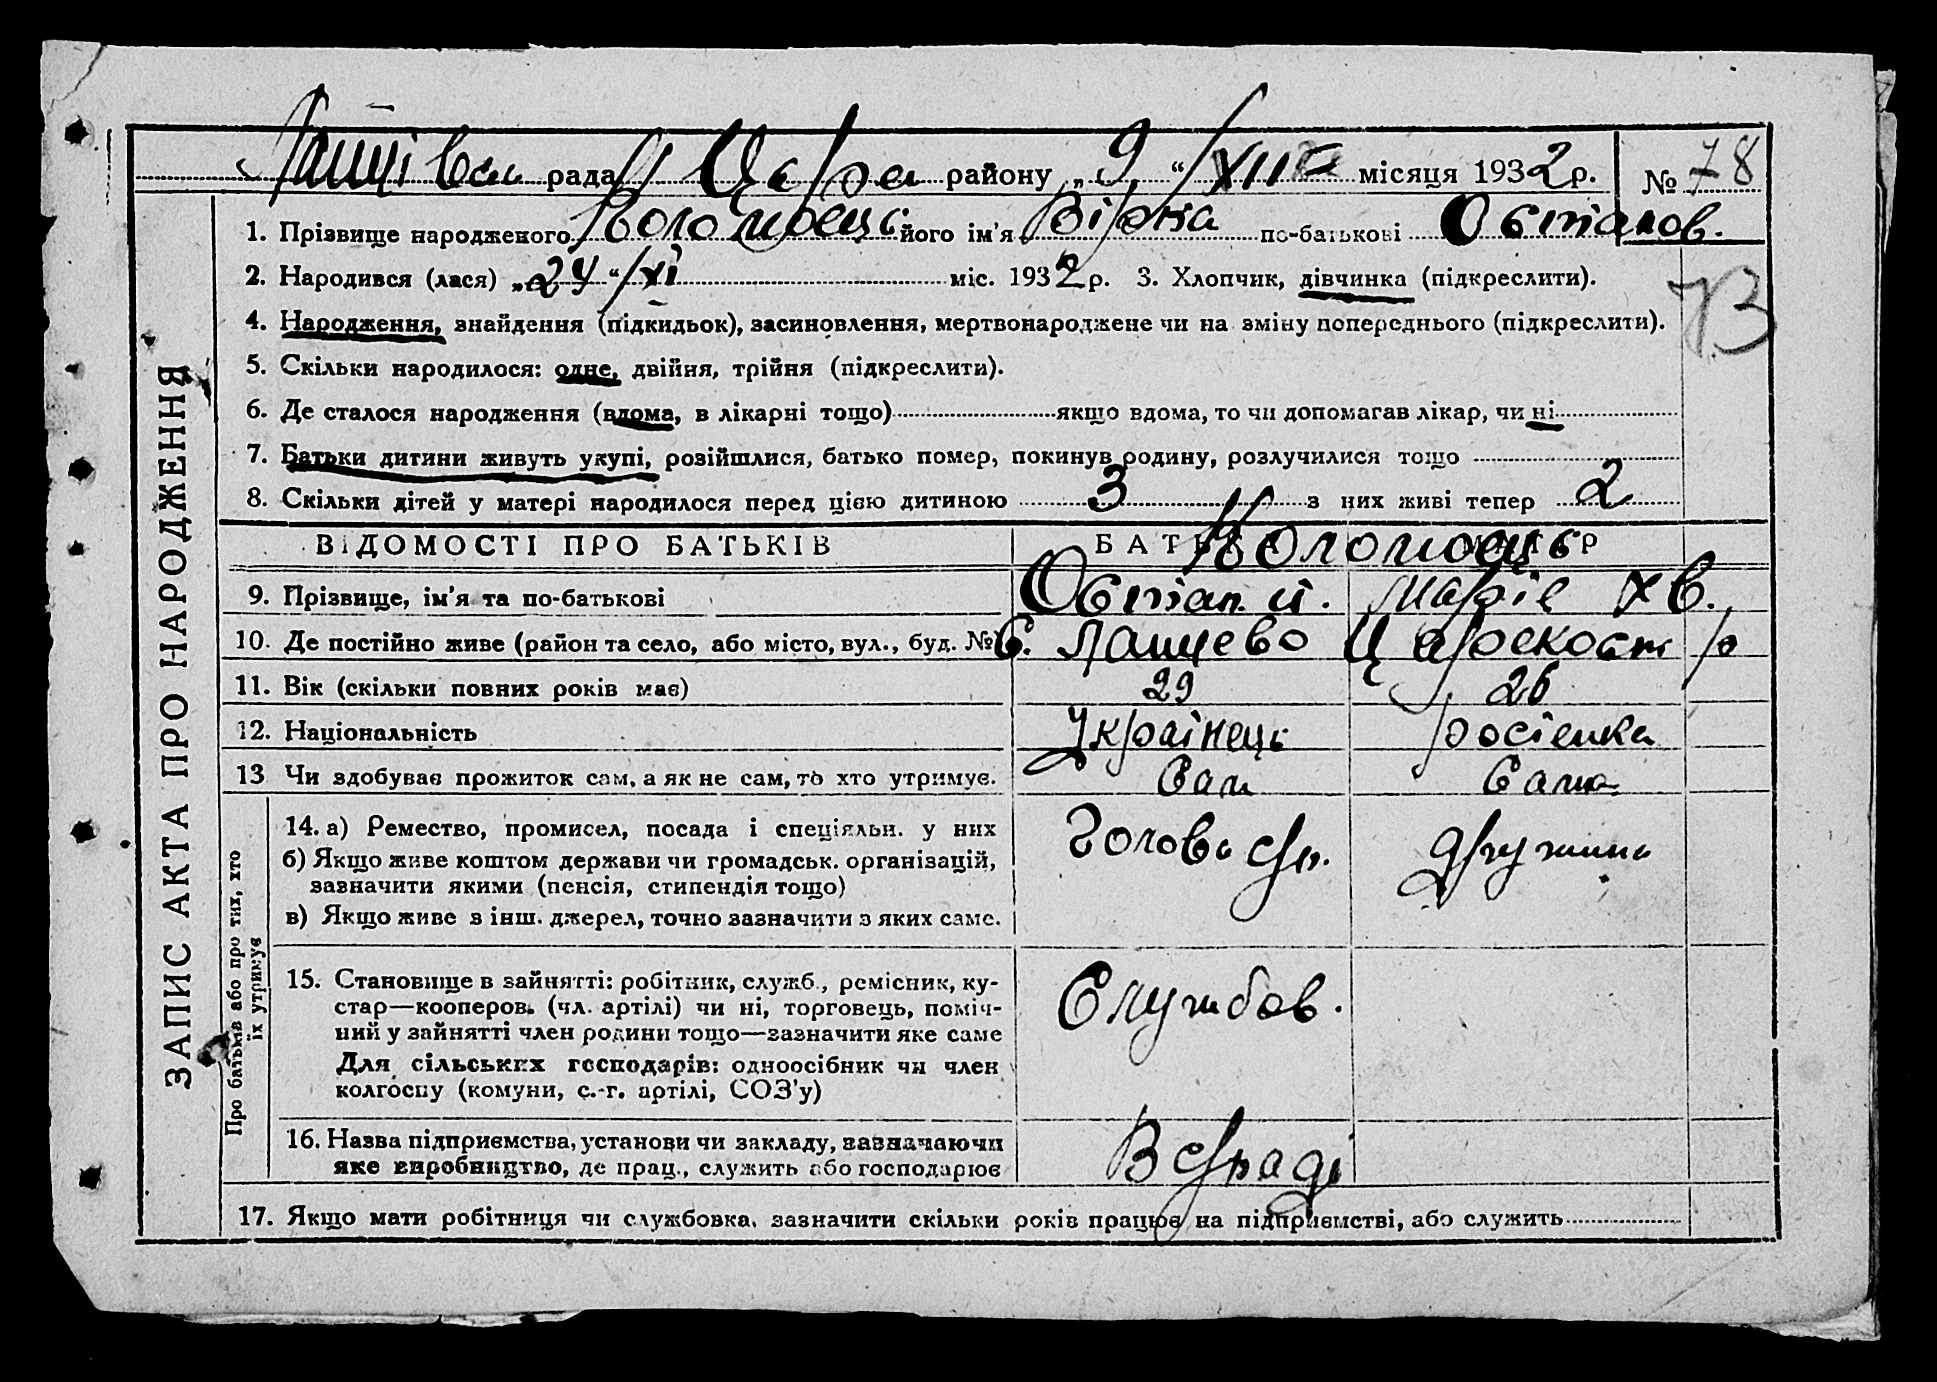 Лащівсь рада Цар района району „9“ XII місяця 1932 р. № 78
1. Прізвище народженого Коломоєць його ім'я Вірка по-батькові Остапов.
2. Народився (лася) „24“ XI міс. 1932 р. 3. Хлопчик, дівчинка (підкреслити).
В
4. Народження, знайдення (підкидьок), засиновлення, мертвонароджене чи на зміну попереднього (підкреслити).
5. Скільки народилося: одне, двійня, трійня (підкреслити).
6. Де сталося народження (вдома, в лікарні тощо) якщо вдома, то чи допомагав лікар, чи ні
7. Батьки дитини живуть укупі, розійшлися, батько помер, покинув родину, розлучилися тощо
8. Скільки дітей у матері народилося перед цією дитиною 3 з них живі тепер 2
ВІДОМОСТІ ПРО БАТЬКІВ БАТЬКО МАТІР
Коломоєць
9. Прізвище, ім'я та по-батькові Остап. й. Марія Хв.
10. Де постійно живе (район та село, або місто, вул., буд. № с. Лащево Царскост р
11. Вік (скільки повних років має) 29 26
12. Національність Українець росіенка
13 Чи здобуває прожиток сам, а як не сам, то хто утримує. Сам Сама
Про батьків або про тих, хто їх утримує
14. а) Ремество, промисел, посада і спеціяльн. у них Голова с/р. дружина
б) Якщо живе коштом держави чи громадськ. організацій,
зазначити якими (пенсія, стипендія тощо)
в) Якщо живе з інш. джерел, точно зазначити з яких саме.
15. Становище в зайнятті: робітник, служб., ремісник, ку-
стар—кооперов. (чл. артілі) чи ні, торговець, поміч-
ний у зайнятті член родини тощо—зазначити яке саме
Для сільських господарів: одноосібник чи член
колгоспу (комуни, с.-г. артілі, СОЗ'у)
Службов.
16. Назва підприємства, установи чи закладу, зазначаючи
яке виробництво, де прац., служить або господарює
В с/раді
17. Якщо мати робітниця чи службовка, зазначити скільки років працює на підприємстві, або служить
ЗАПИС АКТА ПРО НАРОДЖЕННЯ